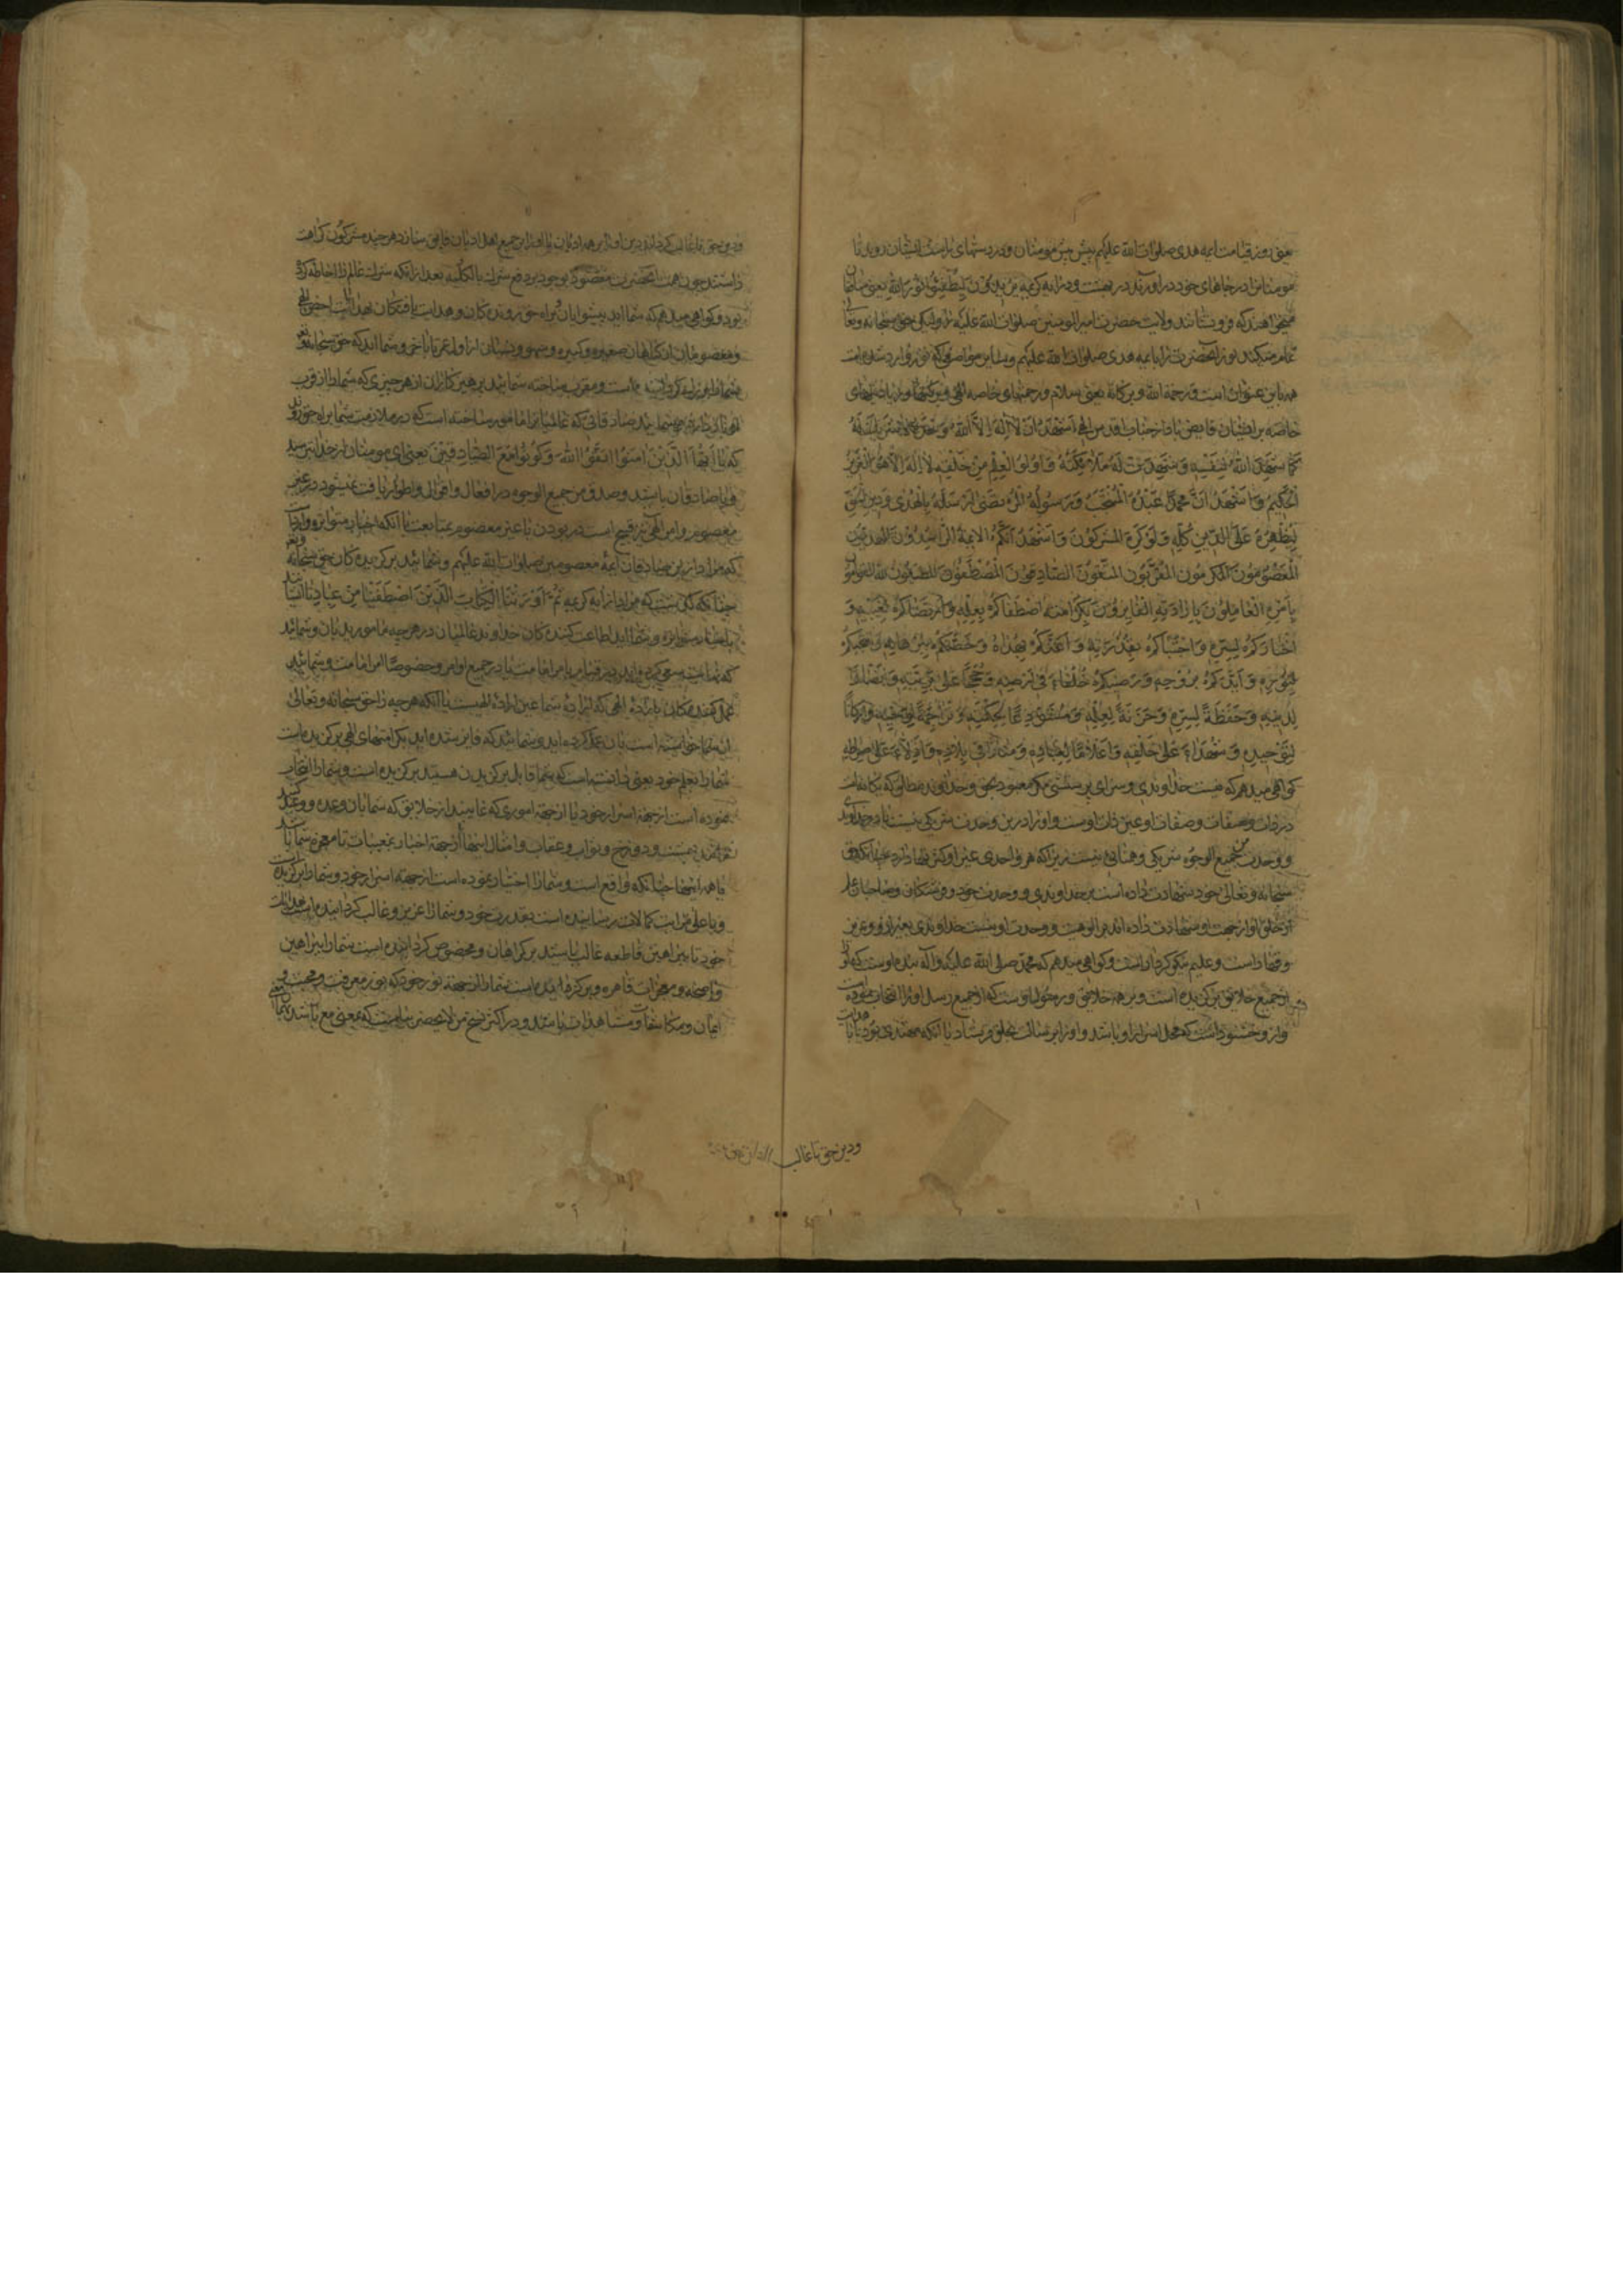 یعنی روز قیامت ایمه هدی صلوات الله علیهم پیش پیش مومنان و بر دستهای راست ایشان روند تا
مومنان را در جاهای خود در اورند در بهشت و در ایه کریمه یریدون لیطفئوا نور الله یعنی منافقان
میخواهند که فرو نشانند ولایت حضرت امیر المومنین صلوات الله علیه را و لیکن حق سبحانه و تعالی
تمام میکند نور آنحضرت را بایمه هدی صلوات الله علیهم و سایر مواضعی که نور وارد شده است
همه باین عنوان است و رحمة الله و برکاته یعنی سلام و رحمتهای خاصه الهی و برکتها و زیادتیهای
خاصه بر ایشان فایض باد از جناب اقدس الهی اَشْهَدُ اَنْ لا اِلهَ اِلاَّ اللهُ وَحْدَهُ لا شَریکَ لَهُ
کَمَا شَهِدَ اللهُ لِنَفْسِهِ وَ شَهِدَتْ لَهُ مَلائِکَتُهُ وَ اُولُوا الْعِلْمِ مِنْ خَلْقِهِ لا اِلهَ اِلاّ هُوَ الْعَزیزُ
الْحَکیمُ وَ اَشْهَدُ اَنَّ مُحَمَّداً عَبْدُهُ الْمُنْتَجَبُ وَ رَسُولُهُ الْمُرْتَضی اَرْسَلَهُ بِالْهُدی وَ دینِ الْحَقِّ
لِیُظْهِرَهُ عَلَی الدّینِ کُلِّهِ وَ لَوْ کَرِهَ الْمُشْرِکُونَ وَ اَشْهَدُ اَنَّکُمُ الائِمَّةُ الرّاشِدُونَ الْمَهْدِیُّونَ
الْمَعْصُومُونَ الْمُکَرَّمُونَ الْمُقَرَّبُونَ الْمُتَّقُونَ الصّادِقُونَ الْمُصْطَفَوْنَ الْمُطیعُونَ لِلّهِ الْقَوّامُونَ
بِاَمْرِهِ الْعامِلُونَ بِاِرادَتِهِ الْفائِزُونَ بِکَرامَتِهِ اصْطَفاکُمْ بِعِلْمِهِ وَ ارْتَضاکُمْ لِغَیْبِهِ وَ
اخْتارَکُمْ لِسِرِّهِ وَ اجْتَباکُمْ بِقُدْرَتِهِ وَ اَعَزَّکُمْ بِهُداهُ وَ خَصَّکُمْ بِبُرْهانِهِ وَ انْتَجَبَکُمْ
لِنُورِهِ وَ اَیَّدَکُمْ بِرُوحِهِ وَ رَضِیَکُمْ خُلَفاءَ فی اَرْضِهِ وَ حُجَجاً عَلی بَرِیَّتِهِ وَ اَنْصاراً
لِدینِهِ وَ حَفَظَةً لِسِرِّهِ وَ خَزَنَةً لِعِلْمِهِ وَ مُسْتَوْدَعاً لِحِکْمَتِهِ وَ تَراجِمَةً لِوَحْیِهِ وَ اَرْکاناً
لِتَوْحیدِهِ وَ شُهَداءَ عَلی خَلْقِهِ وَ اَعْلاماً لِعِبادِهِ وَ مَناراً فی بِلادِهِ وَ اَدِلاّءَ عَلی صِراطِهِ
کواهی میدهم که نیست خداوندی و سزای پرستشی مکر معبود بحق و خداوند مطلق که یکانه است
در ذات و صفات و صفات او عین ذات اوست و او را درین وحدت شریکی نیست
و وحدت من جمیع الوجوه شریکی و همتایی نیست زیرا که هر واحدی غیر او کثرتها دارد چنانکه حق
سبحانه و تعالی خود شهادت داده است بر خداوندی و وحدت خود و فرشتکان و صاحبان علم
از خلق او از جهت او شهادت داده اند بر الوهیت و وحدت او نیست خداوندی بغیر از او و عزیز
و قهار است و علیم نیکو کردار است و کواهی میدهم که محمد صلی الله علیه و آله بنده اوست که او را
از جمیع خلایق برکزیده است و بر همه خلایق و رسول اوست که از جمیع رسل او را انتخاب نموده
و از و خشنود است که محل اسرار او باشد و او را برسالت بخلق فرستاد با آنکه مهتدی بود
ودین حق تا غالب
ودین حق تا غالب کرداند دین او را بر همه ادیان یا او را بر جمیع اهل ادیان فایق سازد هر چند مشرکون کراهت
داشتند چون همت آنحضرت مقصور بود بر دفع شرک بالکلیه بعد از آنکه شرک عالم را احاطه کرده
بود و کواهی میدهم که شما اید پیشوایان براه حق روندکان و هدایت یافتکان بهدایات خاص الهی
و معصومان از کناهان صغیره و کبیره و سهو و نسیان از اول عمر تا باخر و شما اید که حق سبحانه و تعالی
شما را کرامی کردانیده است و مقرب ساخته شما یید پرهیزکاران از هر چیزی که شما را از قرب
الهی باز دارد و شما یید صادقانی که عالمیان را مامور ساخته است که در ملازمت شما براه حق روند
که یا اَیُّهَا الَّذینَ آمَنُوا اتَّقُوا اللهَ وَ کُونُوا مَعَ الصّادِقینَ یعنی ای مومنان از خدا بترسید
و با صادقان باشید و صدق من جمیع الوجوه در افعال و اقوال و اطوار یافت نمیشود در غیر
معصوم و امر الهی نیز قبیح است در بودن با غیر معصوم بمتابعت با آنکه اخبار متواتره وارد است
که مراد ازین صادقان ایمه معصومین صلوات الله علیهم و شما یید برکزیدهکان حق سبحانه و تعالی
چنانکه کذشت که مراد از ایه کریمه ثُمَّ اَوْرَثْنَا الْکِتابَ الَّذینَ اصْطَفَیْنا مِنْ عِبادِنا شمایید
باخبار متواتره و شما اید اطاعت کنندهکان خداوند عالمیان در هر چه مامورید بان و شما یید
که نهایت سعی کرده اید در قیام بامر امامت یا در جمیع اوامر و خصوصا امر امامت و شما یید
عمل کنندهکان باراده الهی که اراده شما عین اراده الهیست با آنکه هر چه را حق سبحانه و تعالی
از شما خواسته است بان عمل کرده اید و شما یید که فایز شده اید بکرامتهای الهی برکزیده است
شما را بعلم خود یعنی دانسته است که شما قابل برکزیدن هستید برکزیده است و شما را اختیار
نموده است از جهة اسرار خود یا از جهة اموری که غایبند از خلایق که شما بان وعده و وعید
بهشت و دوزخ و ثواب و عقاب و امثال اینها از جهة اخبار بمغیبات تا معجزه شما باشد
با همه اینها چنانکه واقع است و شما را اختیار نموده است از جهة اسرار خود و شما را برکزیده است
و باعلی مراتب کمالات رسانیده است بقدرت خود و شما را عزیز و غالب کردانیده است بهدایت
خود تا ببراهین قاطعه غالب باشید بر کمراهان و مخصوص کردانیده است شما را ببراهین
واضحه و معجزات قاهره و برکزیده است شما را از جهة نور خود که نور معرفت و محبت و
ایمان و مکاشفات و مشاهدات باشد و در اکثر نسخ من لا یحضر بباست که بمعنی مع باشد